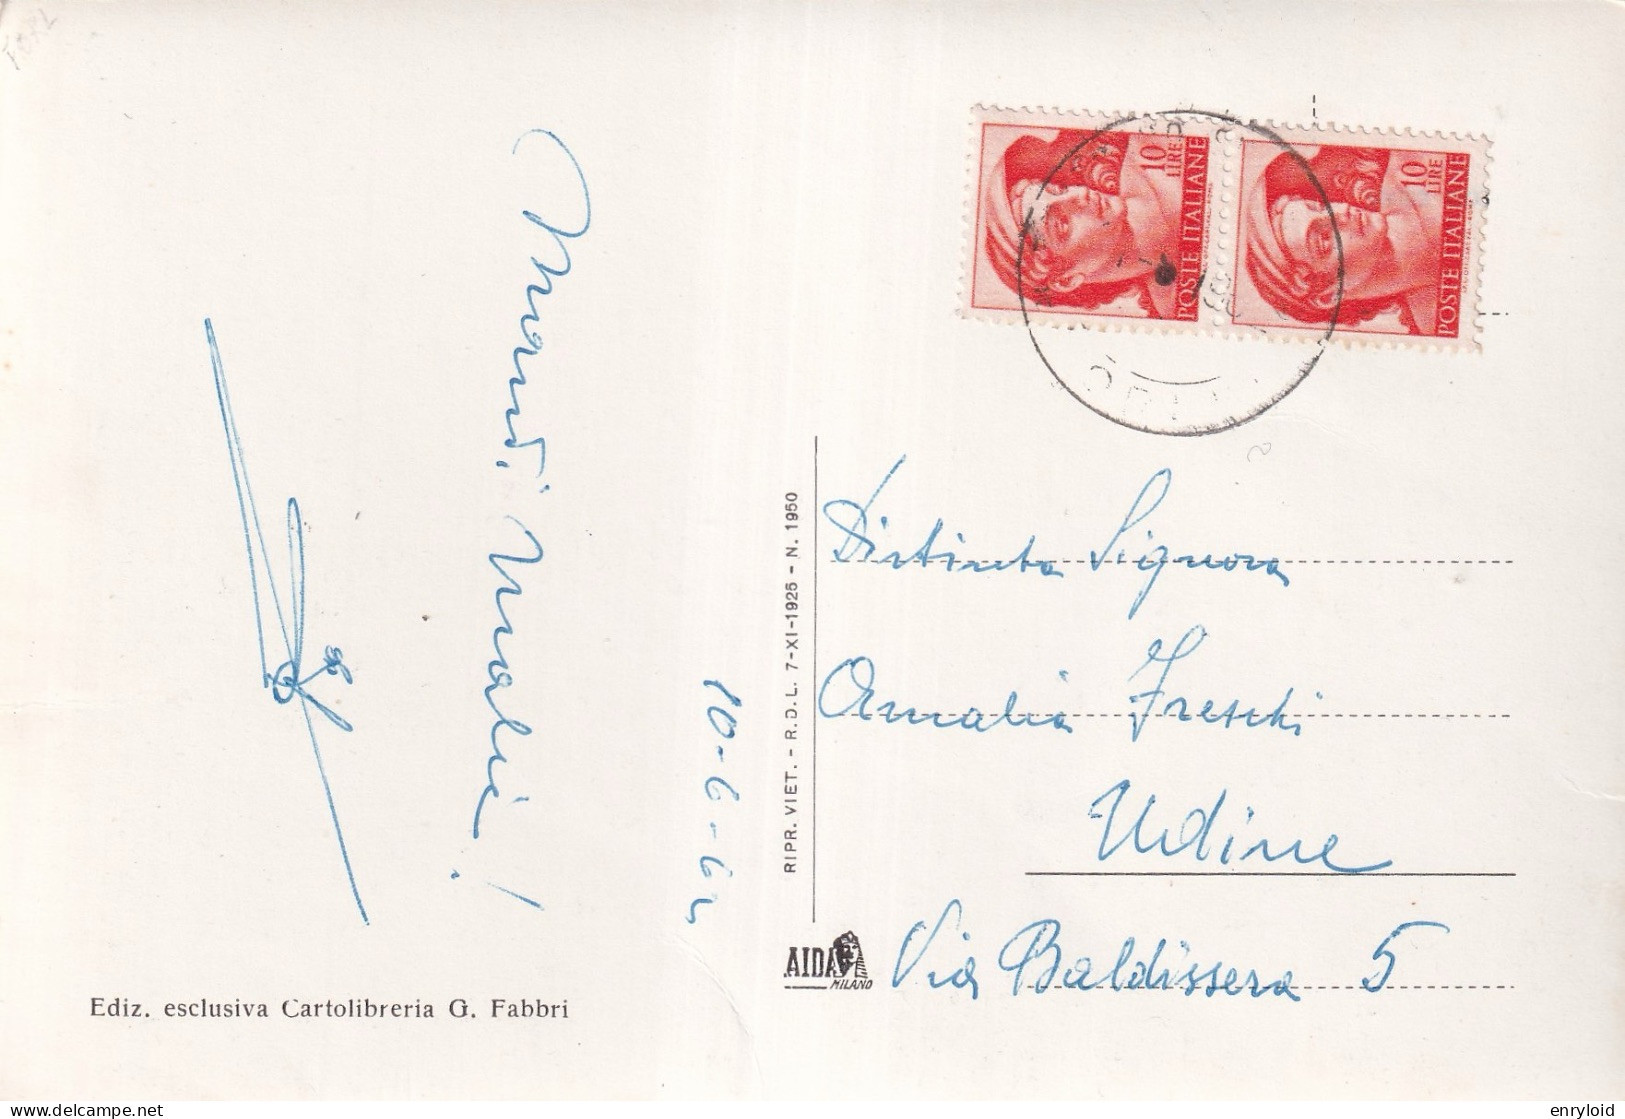 Mandi, Malie!
10-6-64
Ediz. esclusiva Cartolibreria G. Fabbri
RIPR. VIET. - R.D.L. 7-XI-1925 - N. 1950
AIDA
MILANO
10
LIRE
POSTE ITALIANE
10
LIRE
POSTE ITALIANE
Distinta Signora
Amalia Freschi
Udine
Via Baldissera 5
enryloid